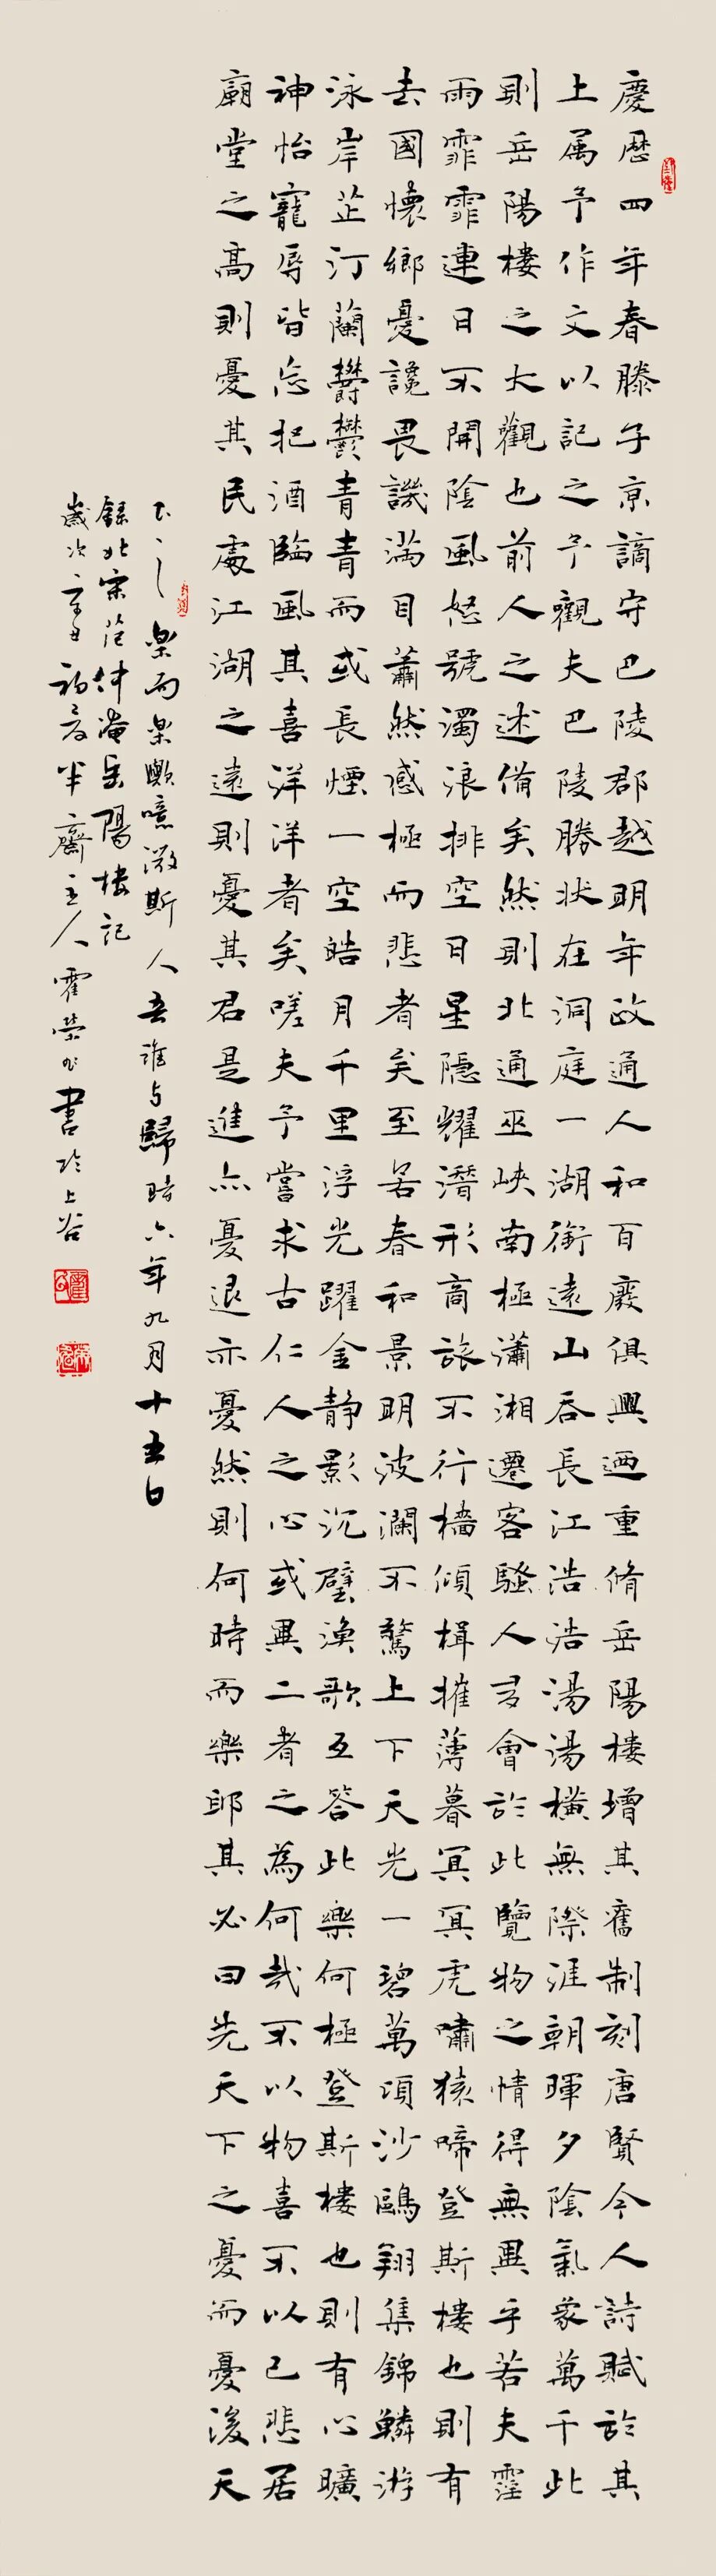 慶歷四年春滕子京謫守巴陵郡越明年政通人和百廢俱興迺重脩岳陽樓增其舊制刻唐賢今人詩賦於其
上属予作文以記之予觀夫巴陵勝状在洞庭一湖銜遠山吞長江浩浩湯湯橫無際涯朝暉夕陰氣象萬千此
則岳陽樓之大觀也前人之述備矣然則北通巫峽南極瀟湘遷客騷人多會於此覽物之情得無異乎若夫霪
雨霏霏連日不開陰風怒號濁浪排空日星隱耀潛形商旅不行檣傾楫摧薄暮冥冥虎嘯猿啼登斯樓也則有
去國懷鄉憂讒畏譏滿目蕭然感極而悲者矣至若春和景明波瀾不驚上下天光一碧萬頃沙鷗翔集錦鱗游
泳岸芷汀蘭欝鬱青青而或長煙一空皓月千里浮光躍金靜影沉璧漁歌互答此樂何極登斯樓也則有心曠
神怡寵辱皆忘把酒臨風其喜洋洋者矣嗟夫予嘗求古仁人之心或異二者之為何哉不以物喜不以己悲居
廟堂之高則憂其民處江湖之遠則憂其君是進亦憂退亦憂然則何時而樂耶其必曰先天下之憂而憂後天
下之樂而樂歟噫微斯人吾誰与歸時六年九月十五日
錄北宋范仲淹岳陽樓記
歲次辛丑初半齋主人霍榮書於上谷